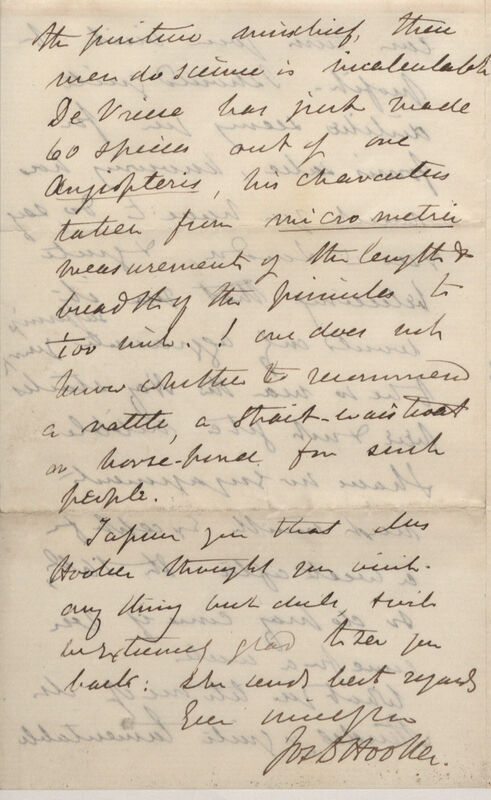 the positive mischief, these
men do science is incalculable
De Vriese has just made
60 species out of one
Angiopteris, his characters
taken from micrometric
measurements of the length &
breadth of the pinnules to
1/100 inch. ! one does not
know whether to recommend
a rattle, a strait-waistcoat
or horse-pond for such
people.
I assure you that Mrs
Hooker thought your visit
any thing but dull, & will
be extremely glad to see you
back: she sends best regards
Ever
Jos D Hooker.